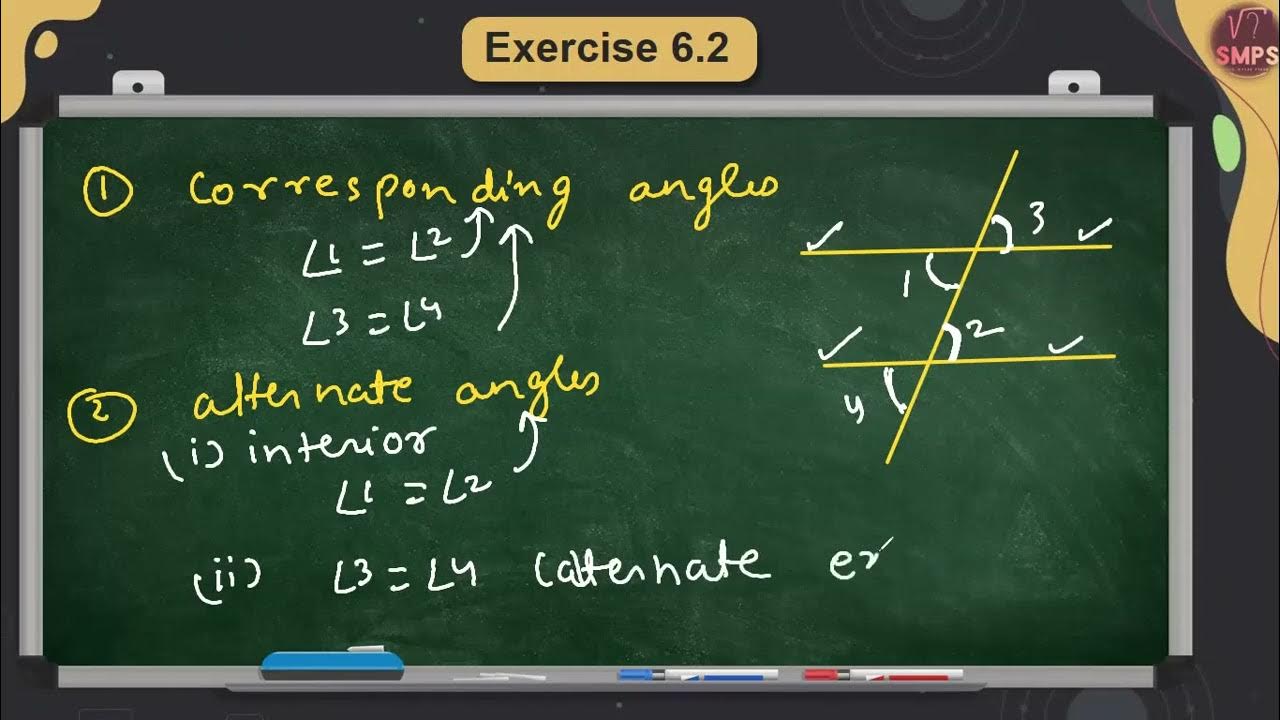 Exercise 6.2
√?
SMPS
① Corresponding angles
∠1 = ∠2
∠3 = ∠4
② alternate angles
(i) interior
∠1 = ∠2
(ii) ∠3 = ∠4 (alternate ex
3
1
2
4